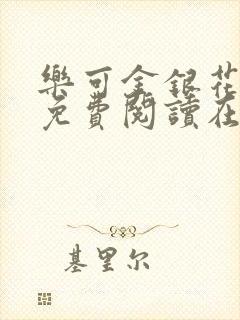 樂可金銀花
免費閱讀在
基里尔